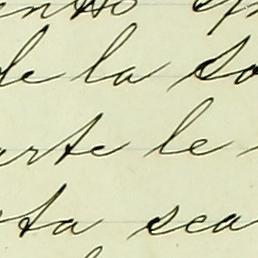 de la so
arte le
sta sea